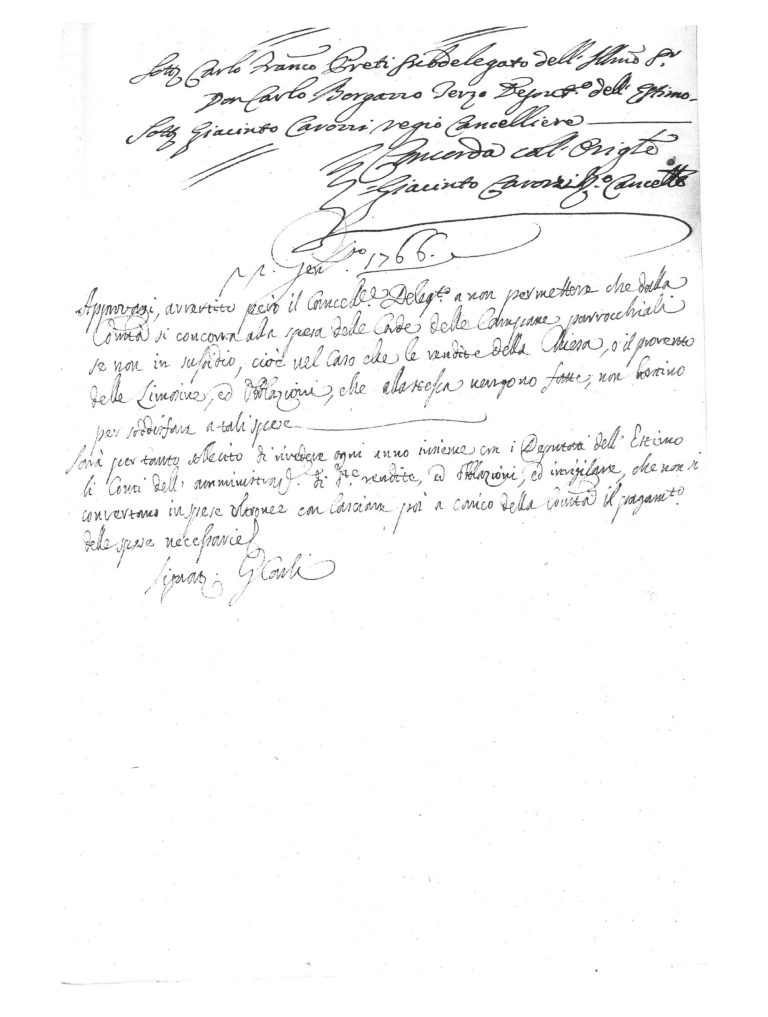 Sott. Carlo Franco Preti Subdelegato dell' Illmo Sr
Don Carlo Borgazzo Terzo Deput.o dell' Estimo
Sott. Giacinto Carozzi regio Cancelliere
Concorda col Origle
Giacinto Carozzi R.o Cancell.e
Gen.ro 1766.
Approvasi, avvertito però il Cancell.e Deleg.to a non permettere che dalla
Comtà si concorra alla spesa delle Corde delle Campane parrocchiali
se non in susidio, cioè nel Caso che le rendite della Chiesa, o il provento
delle Limosine, ed Oblazioni, che alla stessa vengono fatte, non bastino
per soddisfare a tali spese
Sarà per tanto sollecito di rivedere ogni anno insieme con i Deputati dell' Estimo
li Conti dell' amministraz. di d.te rendite, ed Oblazioni, ed invigilare, che non si
convertano in spese oltronee con lasciare poi a carico della Comtà il pagam.to
delle spese necessarie
Signat. G. Carli